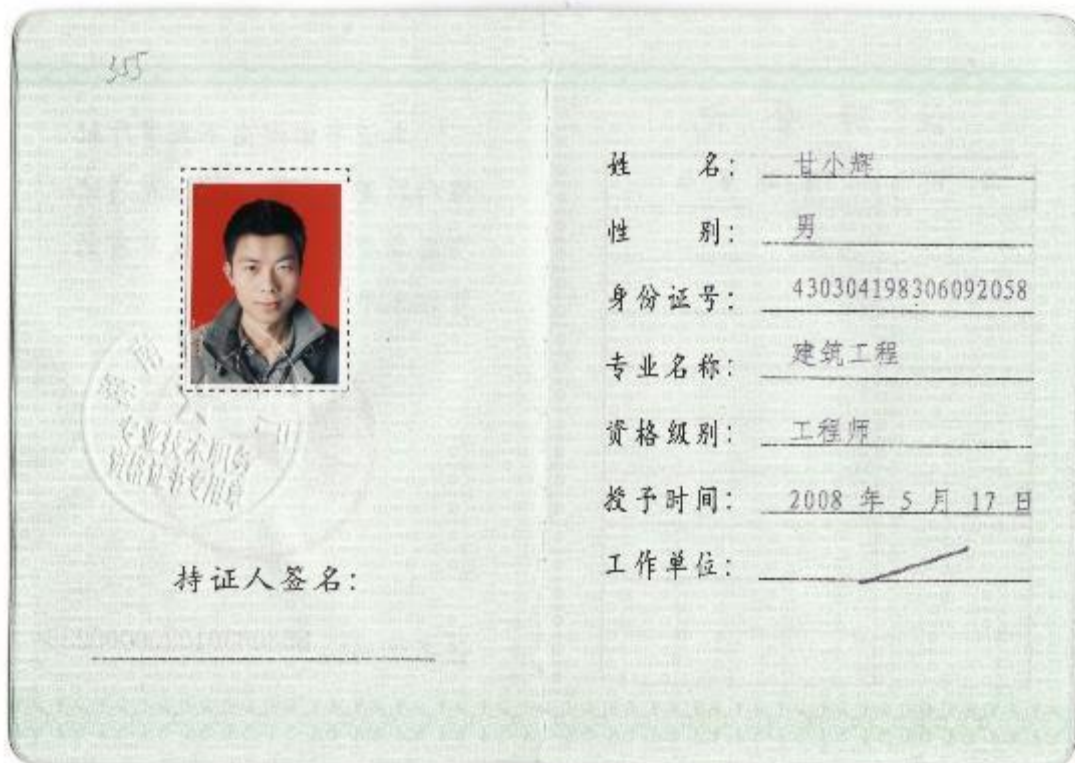 355
专业技术职务
资格证书专用章
持证人签名：
姓 名： 甘小辉
性 别： 男
身份证号： 430304198306092058
专业名称： 建筑工程
资格级别： 工程师
授予时间： 2008 年 5 月 17 日
工作单位：